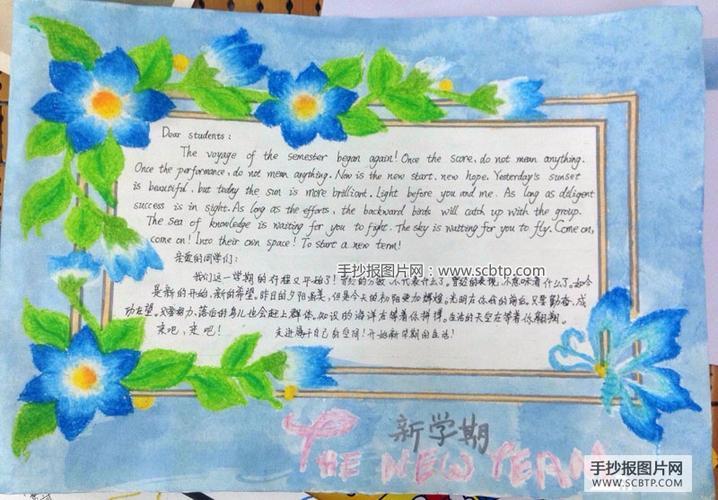 Dear students:
The voyage of the semester began again! Once the score, do not mean anything.
Once the performance, do not mean anything. Now is the new start, new hope. Yesterday's sunset
is beautiful, but today the sun is more brilliant. Light before you and me. As long as diligent
success is in sight. As long as the efforts, the backward birds will catch up with the group.
The sea of knowledge is waiting for you to fight. The sky is waiting for you to fly. Come on,
come on! Into their own space! To start a new term!
亲爱的同学们:
手抄报图片网:www.scbtp.com
我们这一学期的行程又开始了!曾经的分数,不代表什么了。曾经的表现,不意味着什么了。如今
是新的开始,新的希望。昨日的夕阳虽美,但是今天的初阳更加辉煌。光明在你我的前面。只要勤奋,成
功在望。只要努力,落后的鸟儿也会赶上群体。知识的海洋在等着你拼搏。生活的天空在等着你翱翔。
来吧,来吧! 走进属于自己的空间!开始新学期的生活!
新学期
THE NEW TEAM
手抄报图片网
SCBTP.COM